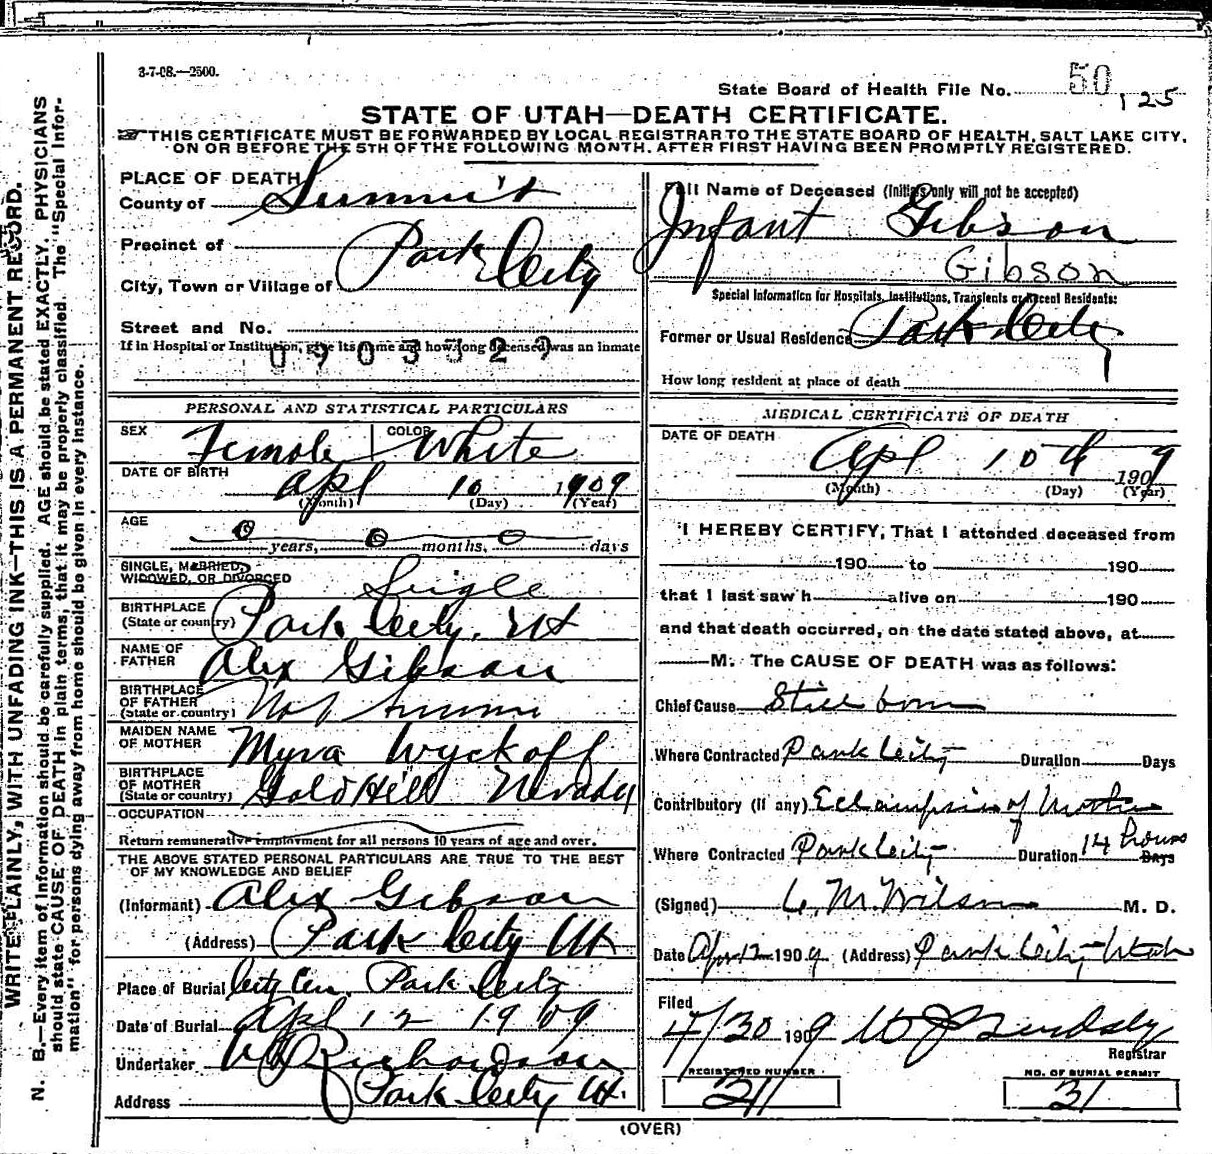 3-7-08.—2500.
State Board of Health File No. 50
125
STATE OF UTAH—DEATH CERTIFICATE.
THIS CERTIFICATE MUST BE FORWARDED BY LOCAL REGISTRAR TO THE STATE BOARD OF HEALTH, SALT LAKE CITY,
ON OR BEFORE THE 5TH OF THE FOLLOWING MONTH, AFTER FIRST HAVING BEEN PROMPTLY REGISTERED.
WRITE PLAINLY, WITH UNFADING INK—THIS IS A PERMANENT RECORD.
N. B.—Every item of information should be carefully supplied. AGE should be stated EXACTLY. PHYSICIANS
should state CAUSE OF DEATH in plain terms, that it may be properly classified. The "Special Infor-
mation" for persons dying away from home should be given in every instance.
PLACE OF DEATH
County of Summit
Precinct of
City, Town or Village of Park City
Street and No.
If in Hospital or Institution, give its name and how long deceased was an inmate
0903529
PERSONAL AND STATISTICAL PARTICULARS
SEX Female COLOR White
DATE OF BIRTH Apl 10 1909
(Month) (Day) (Year)
AGE 0 years, 0 months, 0 days
SINGLE, MARRIED,
WIDOWED, OR DIVORCED Single
BIRTHPLACE
(State or country) Park City, Ut
NAME OF
FATHER Alex Gibson
BIRTHPLACE
OF FATHER
(State or country) Not known
MAIDEN NAME
OF MOTHER Myra Wyckoff
BIRTHPLACE
OF MOTHER
(State or country) Gold Hill Nevada
OCCUPATION
Return remunerative employment for all persons 10 years of age and over.
THE ABOVE STATED PERSONAL PARTICULARS ARE TRUE TO THE BEST
OF MY KNOWLEDGE AND BELIEF
(Informant) Alex Gibson
(Address) Park City Ut
Place of Burial City Cem. Park City
Date of Burial Apl 12 1909
Undertaker Richardson
Address Park City Ut.
Full Name of Deceased (Initials only will not be accepted)
Infant Gibson
Gibson
Special Information for Hospitals, Institutions, Transients or Recent Residents:
Former or Usual Residence Park City
How long resident at place of death
MEDICAL CERTIFICATE OF DEATH
DATE OF DEATH
Apl 10th 1909
(Month) (Day) (Year)
I HEREBY CERTIFY, That I attended deceased from
190 to 190
that I last saw h alive on 190
and that death occurred, on the date stated above, at
M. The CAUSE OF DEATH was as follows:
Chief Cause Still born
Where Contracted Park City Duration Days
Contributory (if any) Eclampsia of Mother
Where Contracted Park City Duration 14 hours Days
(Signed) M. Wilson M. D.
Date Apr 12 1909 (Address) Park City, Utah
Filed
4/30 1909 W J Lindsay
Registrar
REGISTERED NUMBER
NO. OF BURIAL PERMIT
31
(OVER)